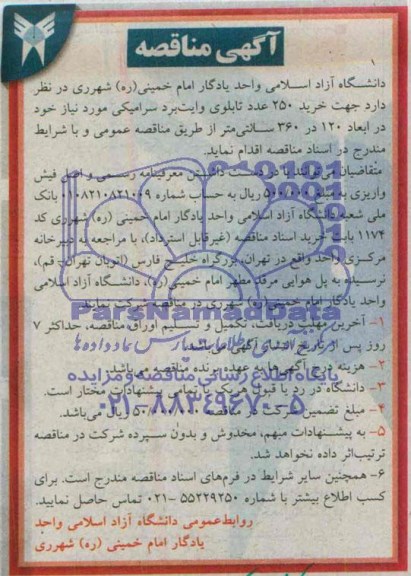 آگهی مناقصه
دانشگاه آزاد اسلامی واحد یادگار امام خمینی(ره) شهرری در نظر
دارد جهت خرید ۲۵۰ عدد تابلوی وایت‌برد سرامیکی مورد نیاز خود
در ابعاد ۱۲۰ در ۳۶۰ سانتی‌متر از طریق مناقصه عمومی و با شرایط
مندرج در اسناد مناقصه اقدام نماید.
متقاضیان می‌توانند با در دست داشتن معرفینامه رسمی و اصل فیش
واریزی به مبلغ ریال به حساب شماره ۰۱۰۸۲۱۰۸۲۱۰۰۹ بانک
ملی شعبه دانشگاه آزاد اسلامی واحد یادگار امام خمینی (ره) شهرری کد
۱۱۷۴ بابت خرید اسناد مناقصه (غیرقابل استرداد)، با مراجعه به دبیرخانه
مرکزی واحد واقع در تهران، بزرگراه خلیج فارس (اتوبان تهران - قم)،
نرسیده به پل هوایی مرقد مطهر امام خمینی(ره)، دانشگاه آزاد اسلامی
واحد یادگار امام خمینی(ره) شهرری در مناقصه شرکت نمایند.
ParsNamadData
۱- آخرین مهلت دریافت، تکمیل و تسلیم اوراق مناقصه، حداکثر ۷
روز پس از تاریخ انتشار آگهی می‌باشد.
۲- هزینه درج آگهی‌ها به عهده برنده مناقصه می‌باشد.
پایگاه اطلاع رسانی مناقصه و مزایده
۳- دانشگاه در رد یا قبول هریک یا تمامی پیشنهادات مختار است.
۰۲۱-۸۸۳۴۹۶۷۰-۵
۴- مبلغ تضمین شرکت در مناقصه ریال می‌باشد.
۵- به پیشنهادات مبهم، مخدوش و بدون سپرده شرکت در مناقصه
ترتیب‌اثر داده نخواهد شد.
۶- همچنین سایر شرایط در فرم‌های اسناد مناقصه مندرج است. برای
کسب اطلاع بیشتر با شماره ۵۵۲۲۹۲۵۰ -۰۲۱ تماس حاصل نمایید.
روابط‌عمومی دانشگاه آزاد اسلامی واحد
یادگار امام خمینی (ره) شهرری